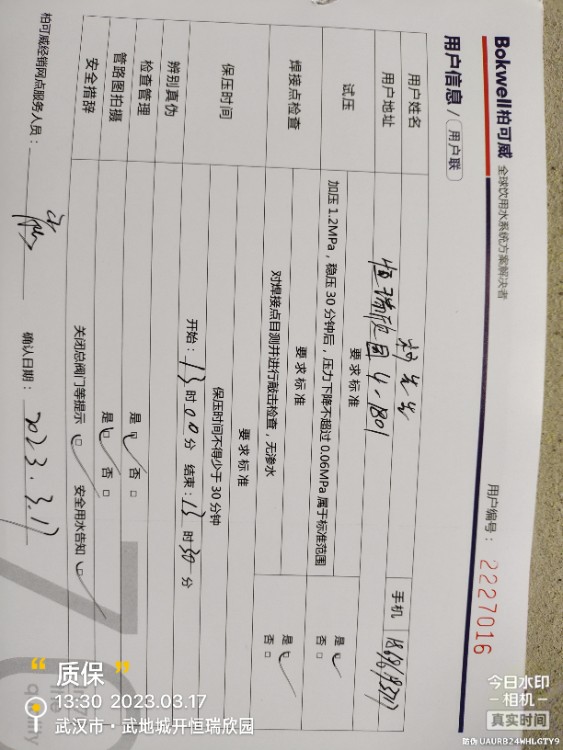 Bokwell柏可威 全球饮用水系统方案解决者
用户编号：2227016
用户信息 / 用户联
用户姓名 先生 手机
用户地址 恒瑞欣园 4-1801
要求标准
试压 加压 1.2MPa，稳压 30 分钟后，压力下降不超过 0.06MPa 属于标准范围 是 □ ✓ 否 □
要求标准
焊接点检查 对焊接点目测并进行敲击检查，无渗水 是 □ ✓ 否 □
要求标准
保压时间 保压时间不得少于 30 分钟
开始：13 时 00 分 结束：13 时 30 分
辨别真伪
检查管理 是 □ ✓ 否 □
管路图拍摄 是 □ ✓ 否 □
安全措辞 关闭总阀门等提示 □ ✓ 安全用水告知 □ ✓
柏可威经销网点服务人员： 确认日期：2023.3.17
质保
13:30 2023.03.17
武汉市·武地城开恒瑞欣园
今日水印
相机
真实时间
防伪 UAURB24WHLGTY9